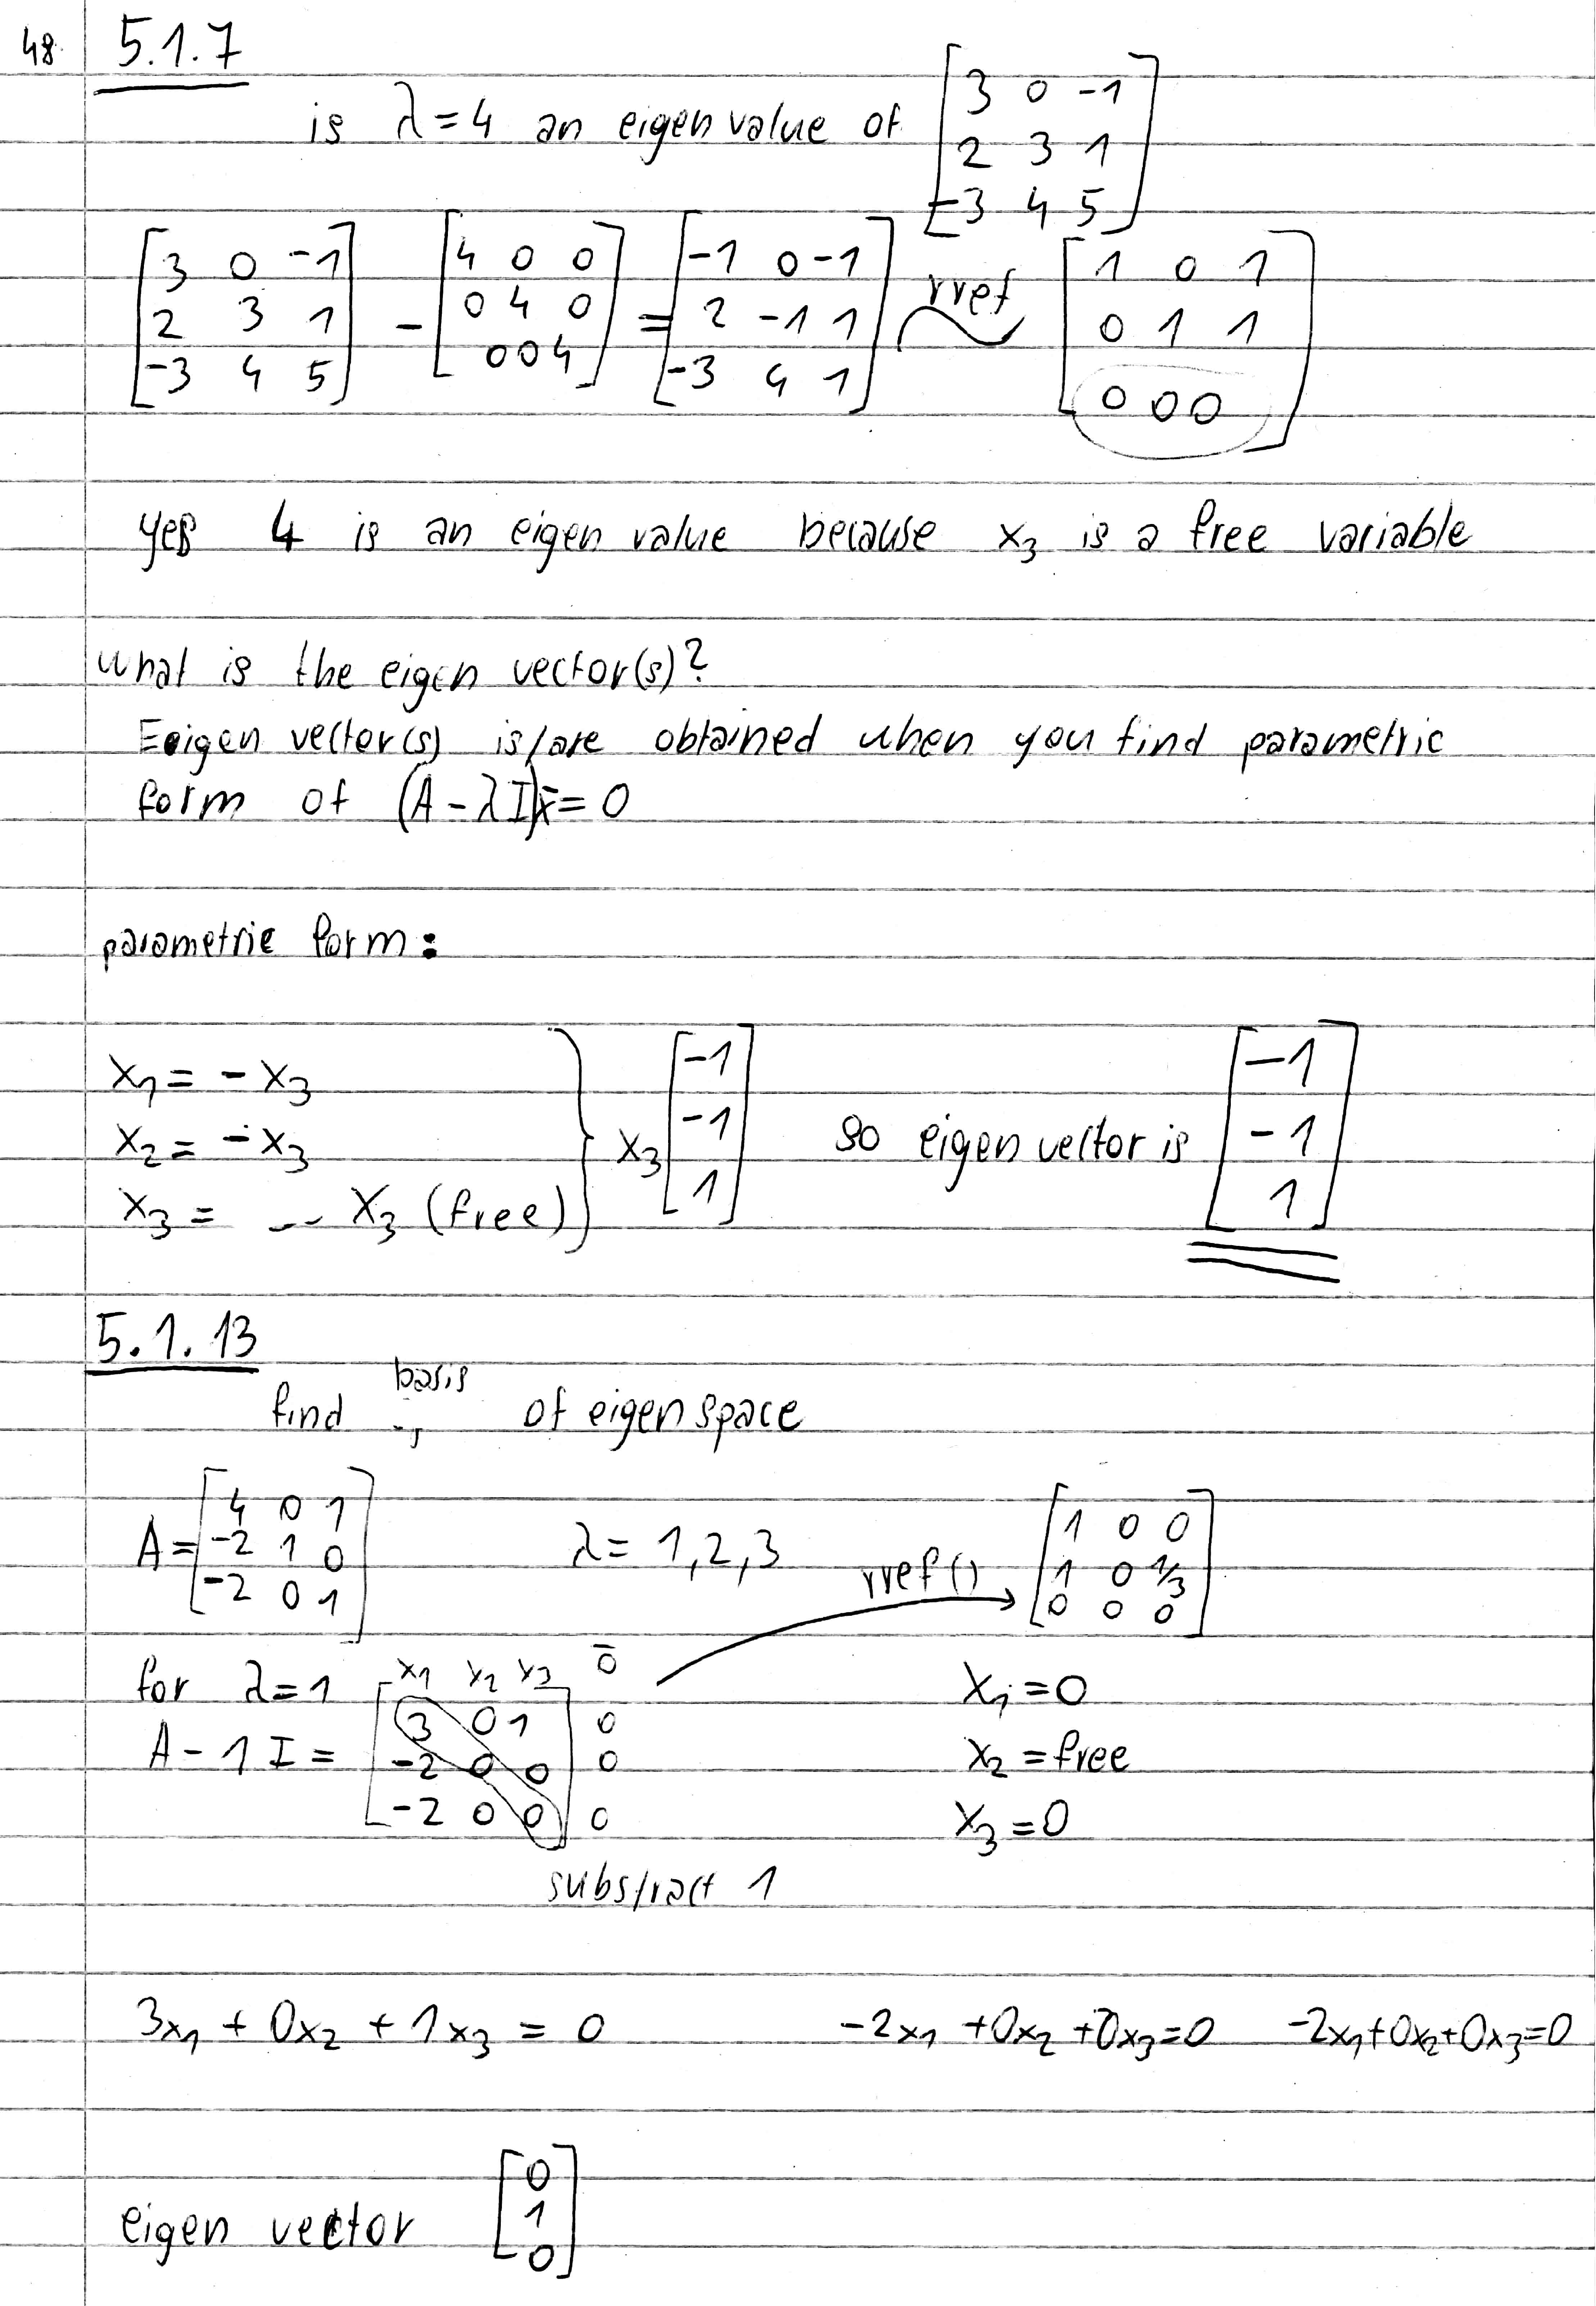 48. 5.1.7
is λ=4 an eigen value of [3 0 -1
2 3 1
-3 4 5]
[3 0 -1
2 3 1
-3 4 5] - [4 0 0
0 4 0
0 0 4] = [-1 0 -1
2 -1 1
-3 4 1] rref [1 0 1
0 1 1
0 0 0]
yes 4 is an eigen value because x₃ is a free variable
what is the eigen vector(s)?
Eigen vector(s) is/are obtained when you find parametric
form of (A - λI)x̄ = 0
parametric form:
x₁ = - x₃
x₂ = - x₃
x₃ = x₃ (free)
x₃ [-1
-1
1]
so eigen vector is [-1
-1
1]
5.1.13
find basis of eigen space
A = [4 0 1
-2 1 0
-2 0 1]
λ = 1,2,3
rref()
[1 0 0
1 0 1/3
0 0 0]
for λ=1
x₁ x₂ x₃ 0̄
A - 1 I = [3 0 1 | 0
-2 0 0 | 0
-2 0 0 | 0]
substract 1
x₁ = 0
x₂ = free
x₃ = 0
3x₁ + 0x₂ + 1x₃ = 0 -2x₁ +0x₂ +0x₃=0 -2x₁+0x₂+0x₃=0
eigen vector [0
1
0]